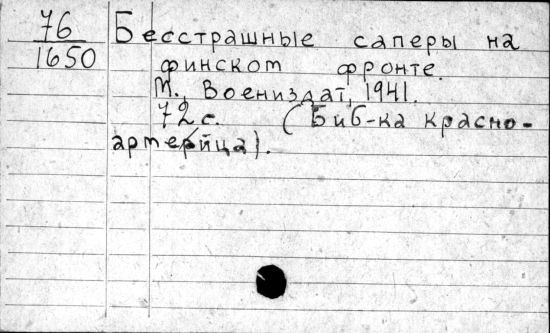 76
1650
Бесстрашные саперы на
финском фронте.
М., Воениздат, 1941.
72 с. (Биб-ка красно-
артерйца).